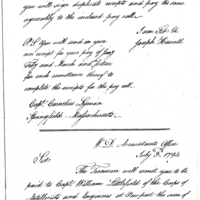 you will sign duplicate receipts and pay the same
agreeably to the inclosed pay roll.
I am Sir &c
Joseph Howell
P.S. You will send on your
own receipt for your pay of Jany
Feby and March and
for each sometime thereby to
complete the receipts for the pay roll.
Capt. Cornelius Lyman
Springfield - Massachusetts
W.D. Accountants Office
July 3d. 1794
Sir.
The Treasurer will send you to be
paid to Capt. William Littlefield of the Corps of
Artillerists and Engineers at Newport the sum of